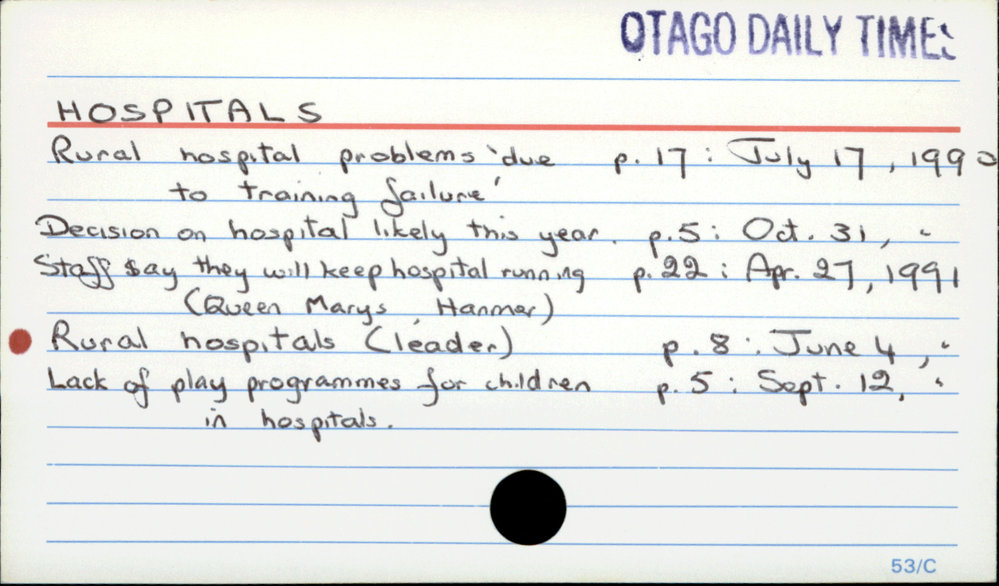 OTAGO DAILY TIMES
HOSPITALS
Rural hospital problems 'due p. 17 : July 17, 1990
to training failure'
Decision on hospital likely this year. p.5 : Oct. 31, "
Staff say they will keep hospital running p.22 : Apr. 27, 1991
(Queen Marys, Hanmer)
Rural hospitals (leader) p.8 : June 4, "
Lack of play programmes for children p.5 : Sept. 12, "
in hospitals.
53/C